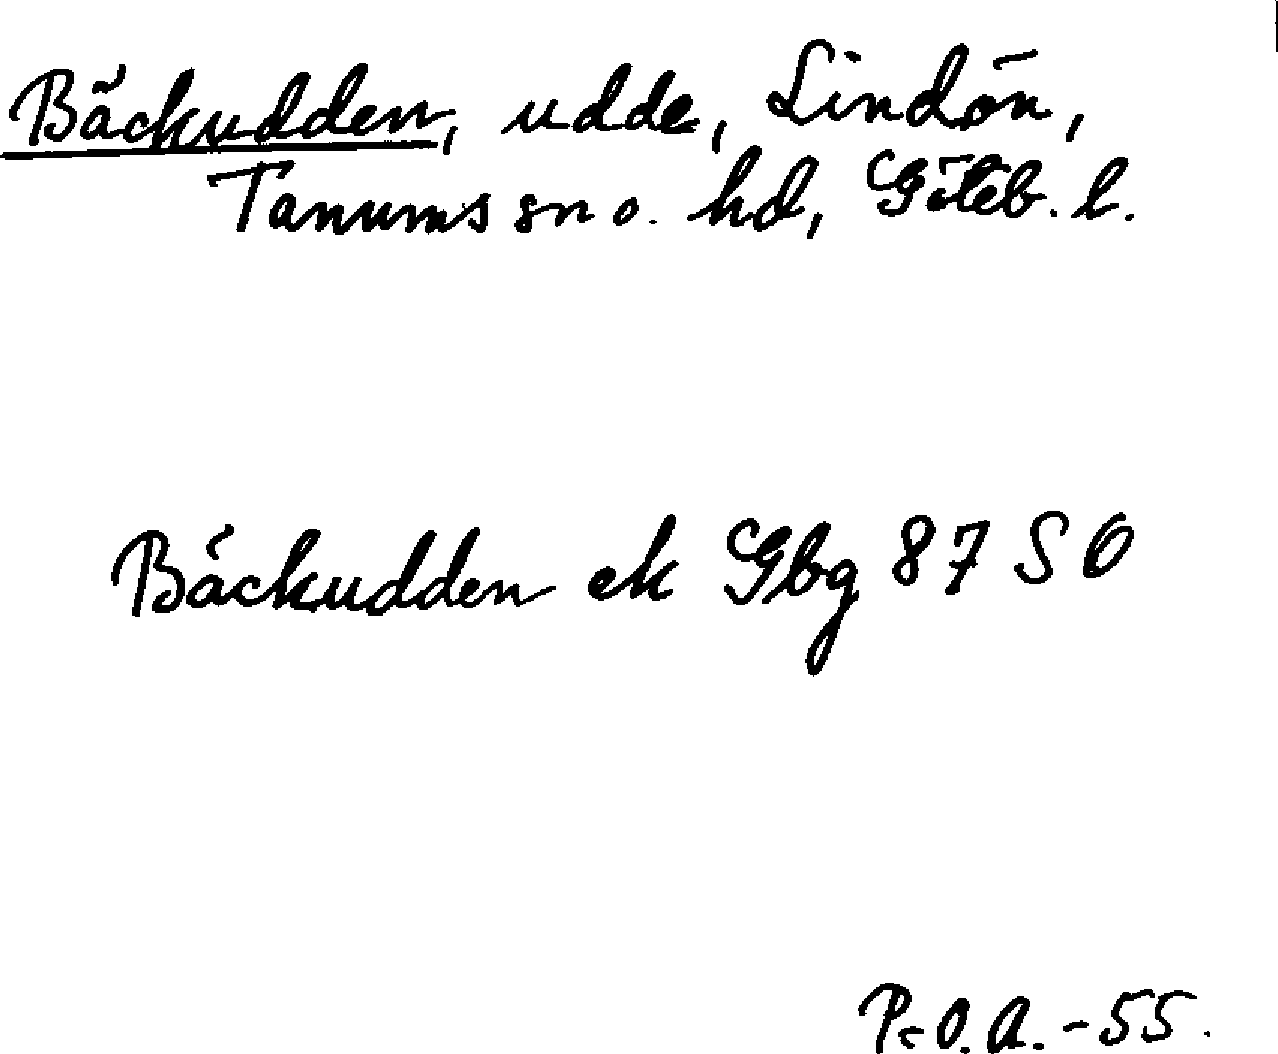 Bäckudden, udde, Lindön,
Tanums sn o. hd, Göteb. l.
Bäckudden ek Gbg 87 SO
P-O.A. -55.